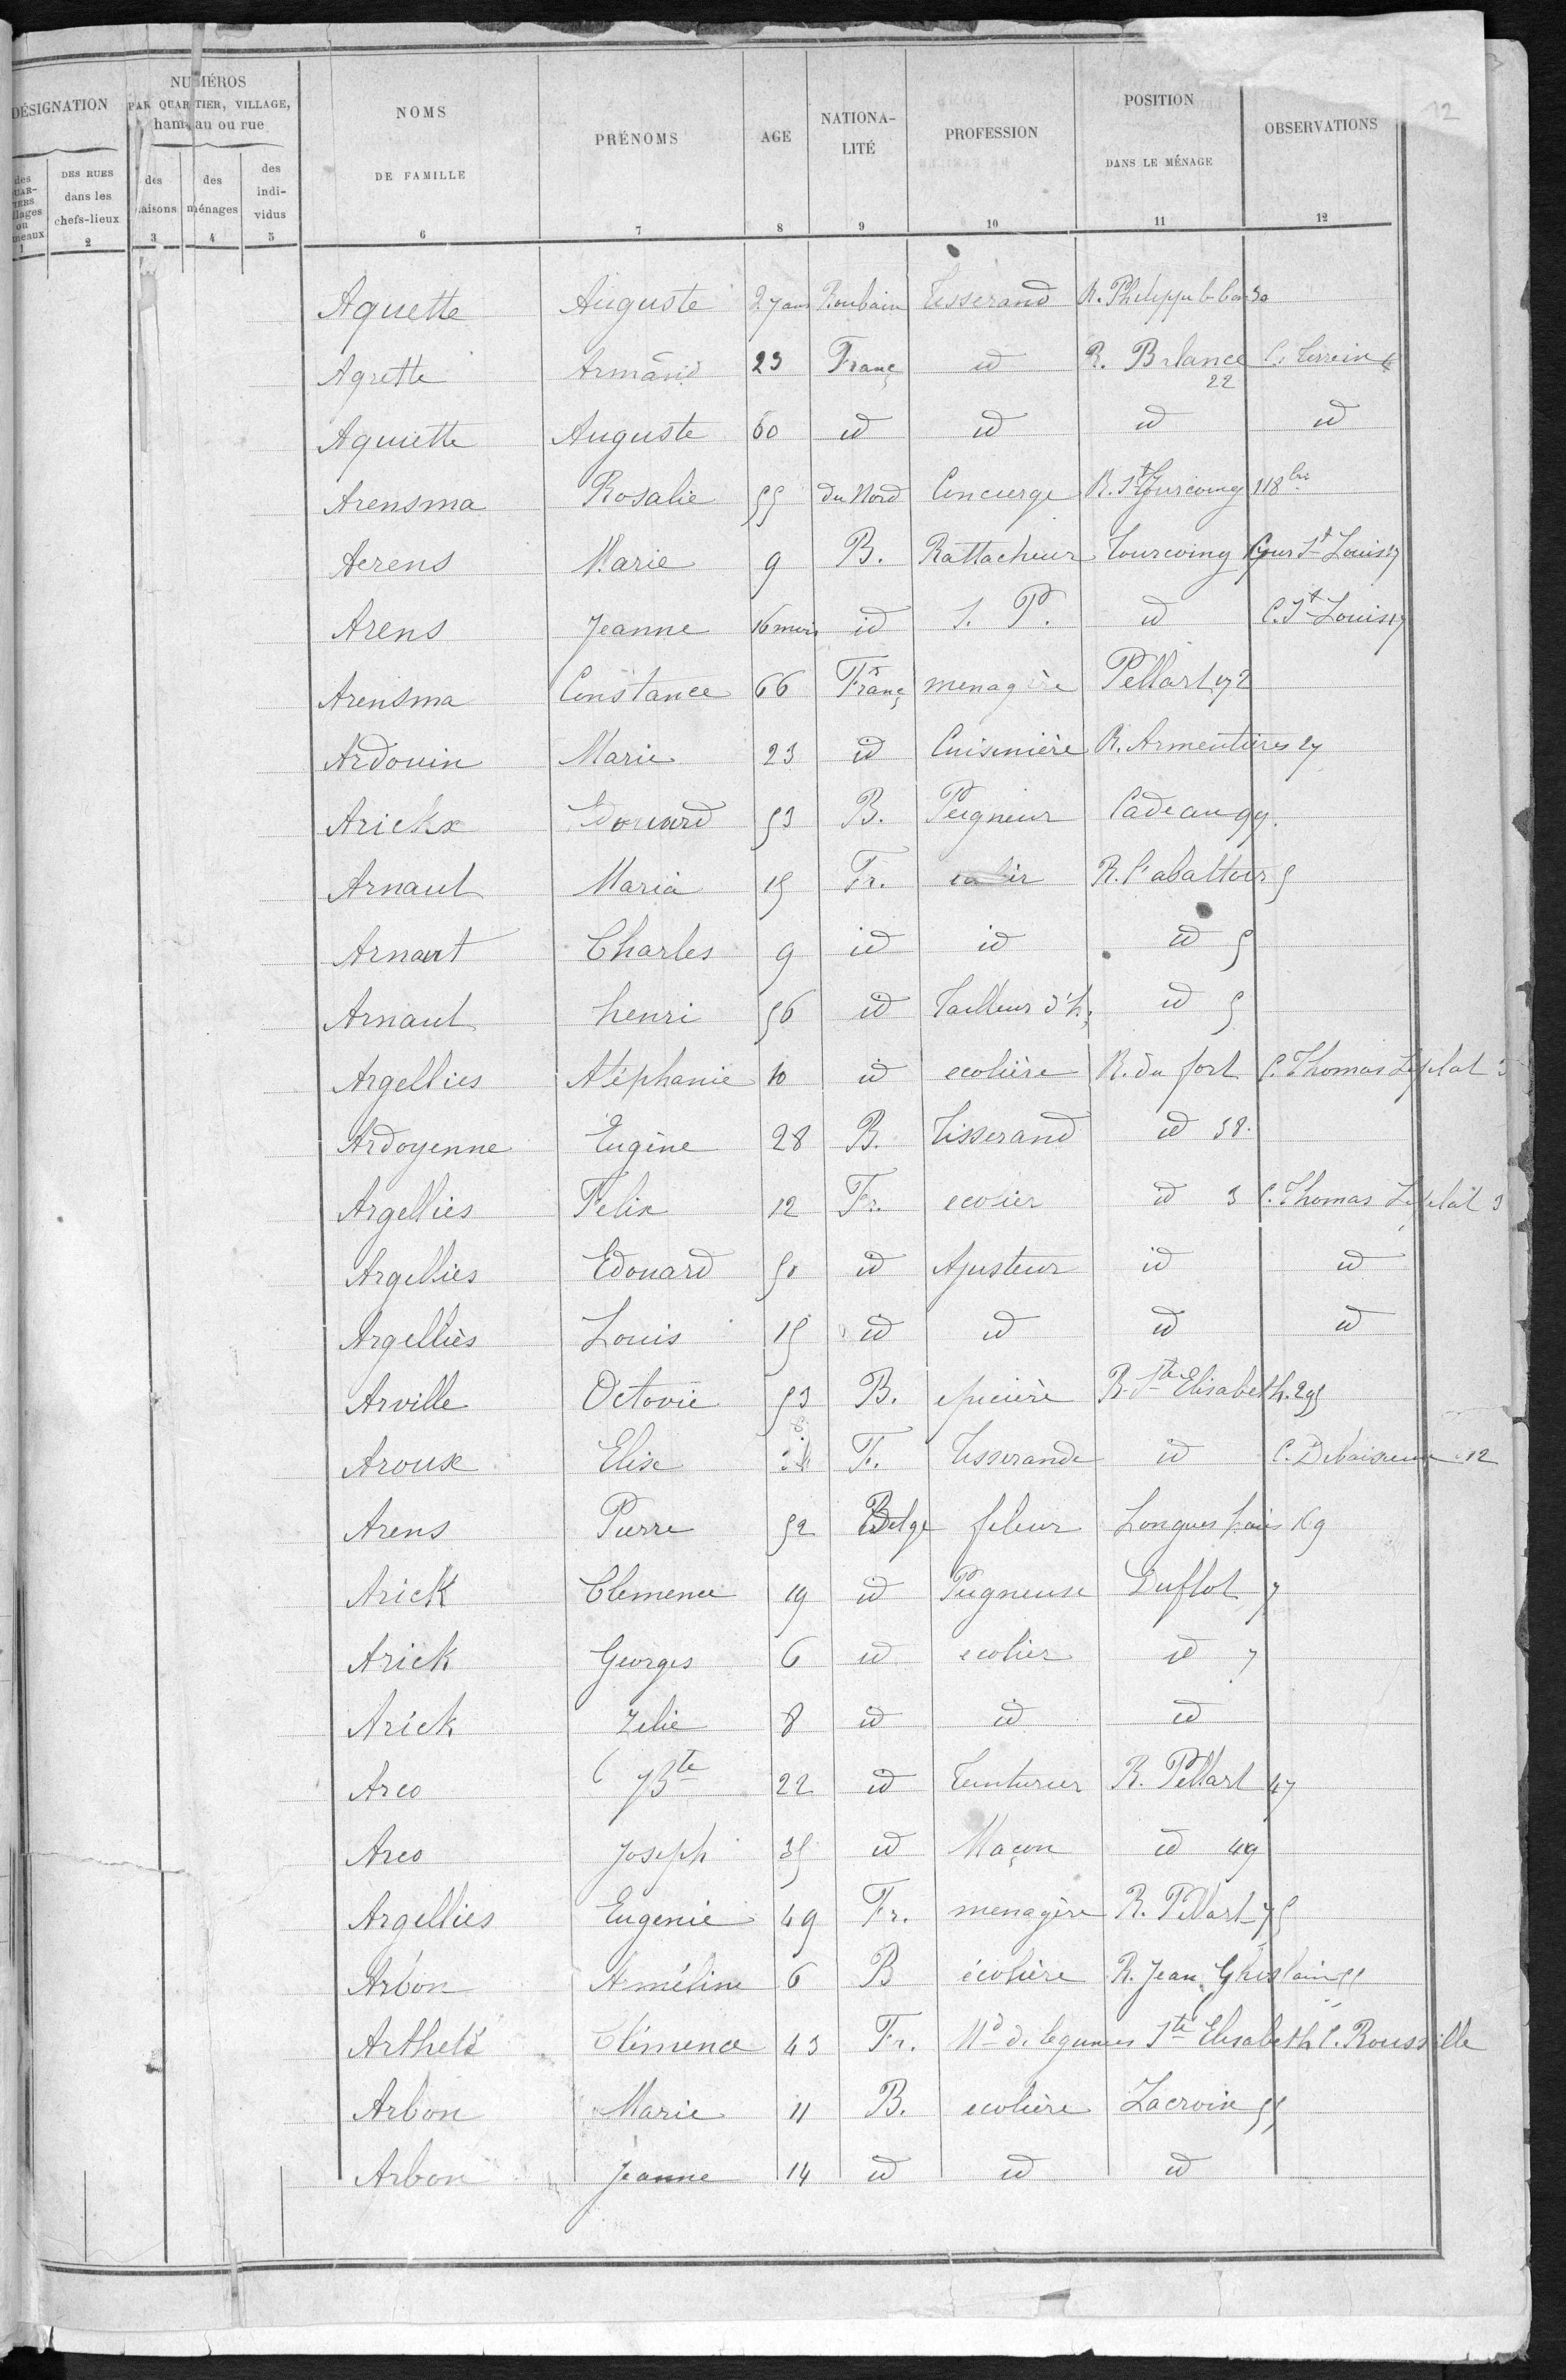 12
DÉSIGNATION
NUMÉROS
PAR QUARTIER, VILLAGE,
hameau ou rue
NOMS
DE FAMILLE
PRÉNOMS
AGE
NATIONA-
LITÉ
PROFESSION
POSITION
DANS LE MÉNAGE
OBSERVATIONS
DES RUES
dans les
chefs-lieux
des
maisons
des
ménages
des
indi-
vidus
1 2 3 4 5 6 7 8 9 10 11 12
Aquette Auguste 27 ans Roubain Tisserand R. Philippe le bon 30
Agrette Armand 23 Franç id R. Brlance 22 C. Terrein
Aquiette Auguste 60 id id id id
Arensma Rosalie 55 du Nord Concierge R. St Tourcoing 118 bis
Aerens Marie 9 B. Rattacheur Tourcoing Cour St Louis 17
Arens Jeanne 16 mois id S. P. id C. St Louis 17
Arensma Constance 66 Franç menagère Pellart 172
Ardouin Marie 23 id Cuisinière R. Armentières 27
Arickx Edouard 53 B. Peigneur Cadeau 99.
Arnaut Maria 15 Fr. R. l'abattoir 5
Arnaut Charles 9 id id id 5
Arnaut henri 56 id Tailleur d'h. id 5
Argellies Stéphanie 10 id ecolière R. du fort C. Thomas Leplat 3
Ardoyenne Eugène 28 B. Tisserand id 58.
Argellies Felix 12 Fr. ecolier id 3 C. Thomas Leplat 3
Argellies Edouard 50 id Ajusteur id id
Argelliès Louis 15 id id id id
Arville Octovie 53 B. epicière R. Ste Elisabeth. 295
Aroux Elise F. Tisserande id C. Debaisieux 12
Arens Pierre 52 Belge fileur Longues haies 169
Arick Clemence 19 id Peigneuse Duflot 7
Arick Georges 6 id ecolier id 7
Arick Zelie 8 id id id
Arco JBte 22 id Teinturier R. Pellart 47
Arco Joseph 35 id Maçon id 49
Argellies Eugenie 49 Fr. menagère R. Pellart 75
Arbon Arméline 6 B écolière R. Jean Ghislain 55
Artheld Clémence 43 Fr. Md de legumes Ste Elisabeth C. Roussille
Arbon Marie 11 B. ecolière Lacroix 55
Arbon Jeanne 14 id id id